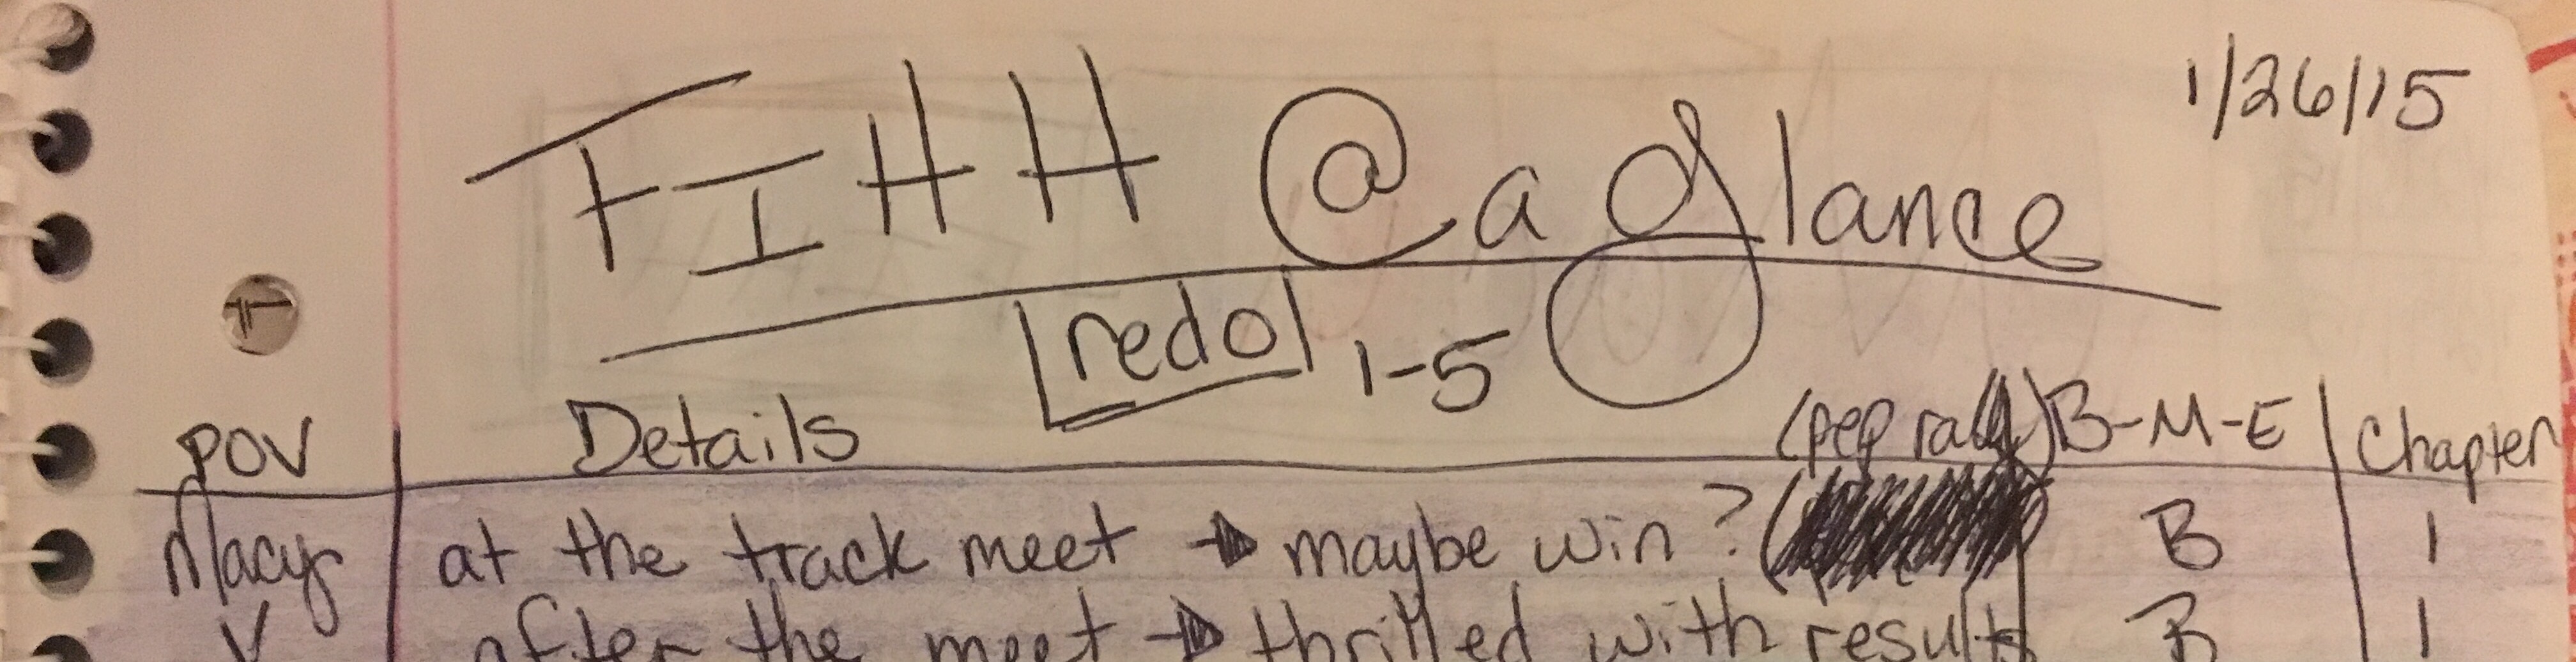 1/26/15
FIHH @ a glance
redo 1-5
POV Details (pep rally) B-M-E Chapter
Macy at the track meet → maybe win? ( B 1
after the meet → thrilled with results B 1